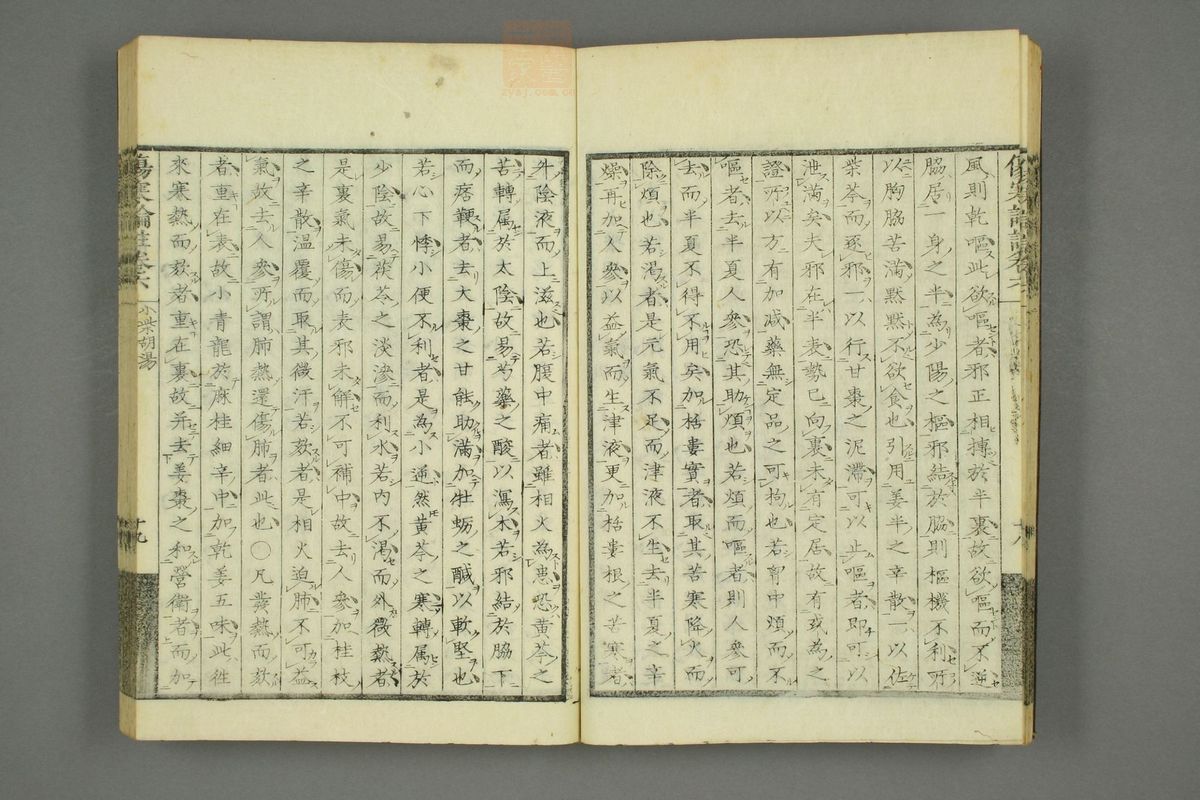 風則乾嘔此欲嘔者邪正相搏於半裏故欲嘔而不逆
脇居一身之半為少陽之樞邪結於脇則樞機不利所
以胸脇苦滿黙黙不欲食也引用姜半之辛散一以佐
柴芩而逐邪一以行甘棗之泥滯可以止嘔者即可以
泄滿矣夫邪在半表勢已向裏未有定居故有或為之
證所以方有加减藥無定品之可拘也若胷中煩而不
嘔者去半夏人參恐其助煩也若煩而嘔者則人參可
去而半夏不得不用矣加栝蔞實者取其苦寒降火而
除煩也若渴者是元氣不足而津液不生去半夏之辛
燥再加人參以益氣而生津液更加栝蔞根之苦寒者
升陰液而上滋也若腹中痛者雖相火為患恐黄芩之
苦轉属於太陰故易芍藥之酸以瀉木若邪結於脇下
而痞鞕者去大棗之甘能助滿加牡蛎之醎以軟堅也
若心下悸小便不利者是為小逆然黄芩之寒轉属於
少陰故易茯苓之淡滲而利水若内不渴而外微熱者
是裏氣未傷而表邪未解不可補中故去人參加桂枝
之辛散温覆而取其微汗若欬者是相火迫肺不可益
氣故去人參所謂肺熱還傷肺者此也〇凡發熱而欬
者重在表故小青龍於麻桂細辛中加乾姜五味此徃
來寒熱而欬者重在裏故并去姜棗之和營衛者而加
傷寒論註卷六
小柴胡湯
十九
十八
zysj.com.cn